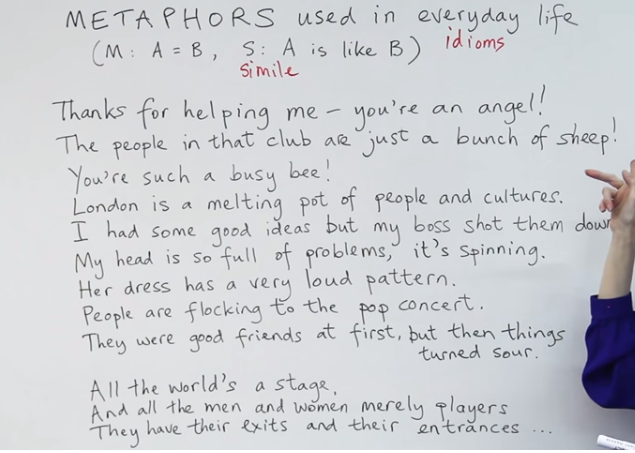 METAPHORS used in everyday life
(M: A = B, S: A is like B) idioms
simile
Thanks for helping me – you're an angel!
The people in that club are just a bunch of sheep!
You're such a busy bee!
London is a melting pot of people and cultures.
I had some good ideas but my boss shot them down
My head is so full of problems, it's spinning.
Her dress has a very loud pattern.
People are flocking to the pop concert.
They were good friends at first, but then things
turned sour.
All the world's a stage,
And all the men and women merely players
They have their exits and their entrances ...